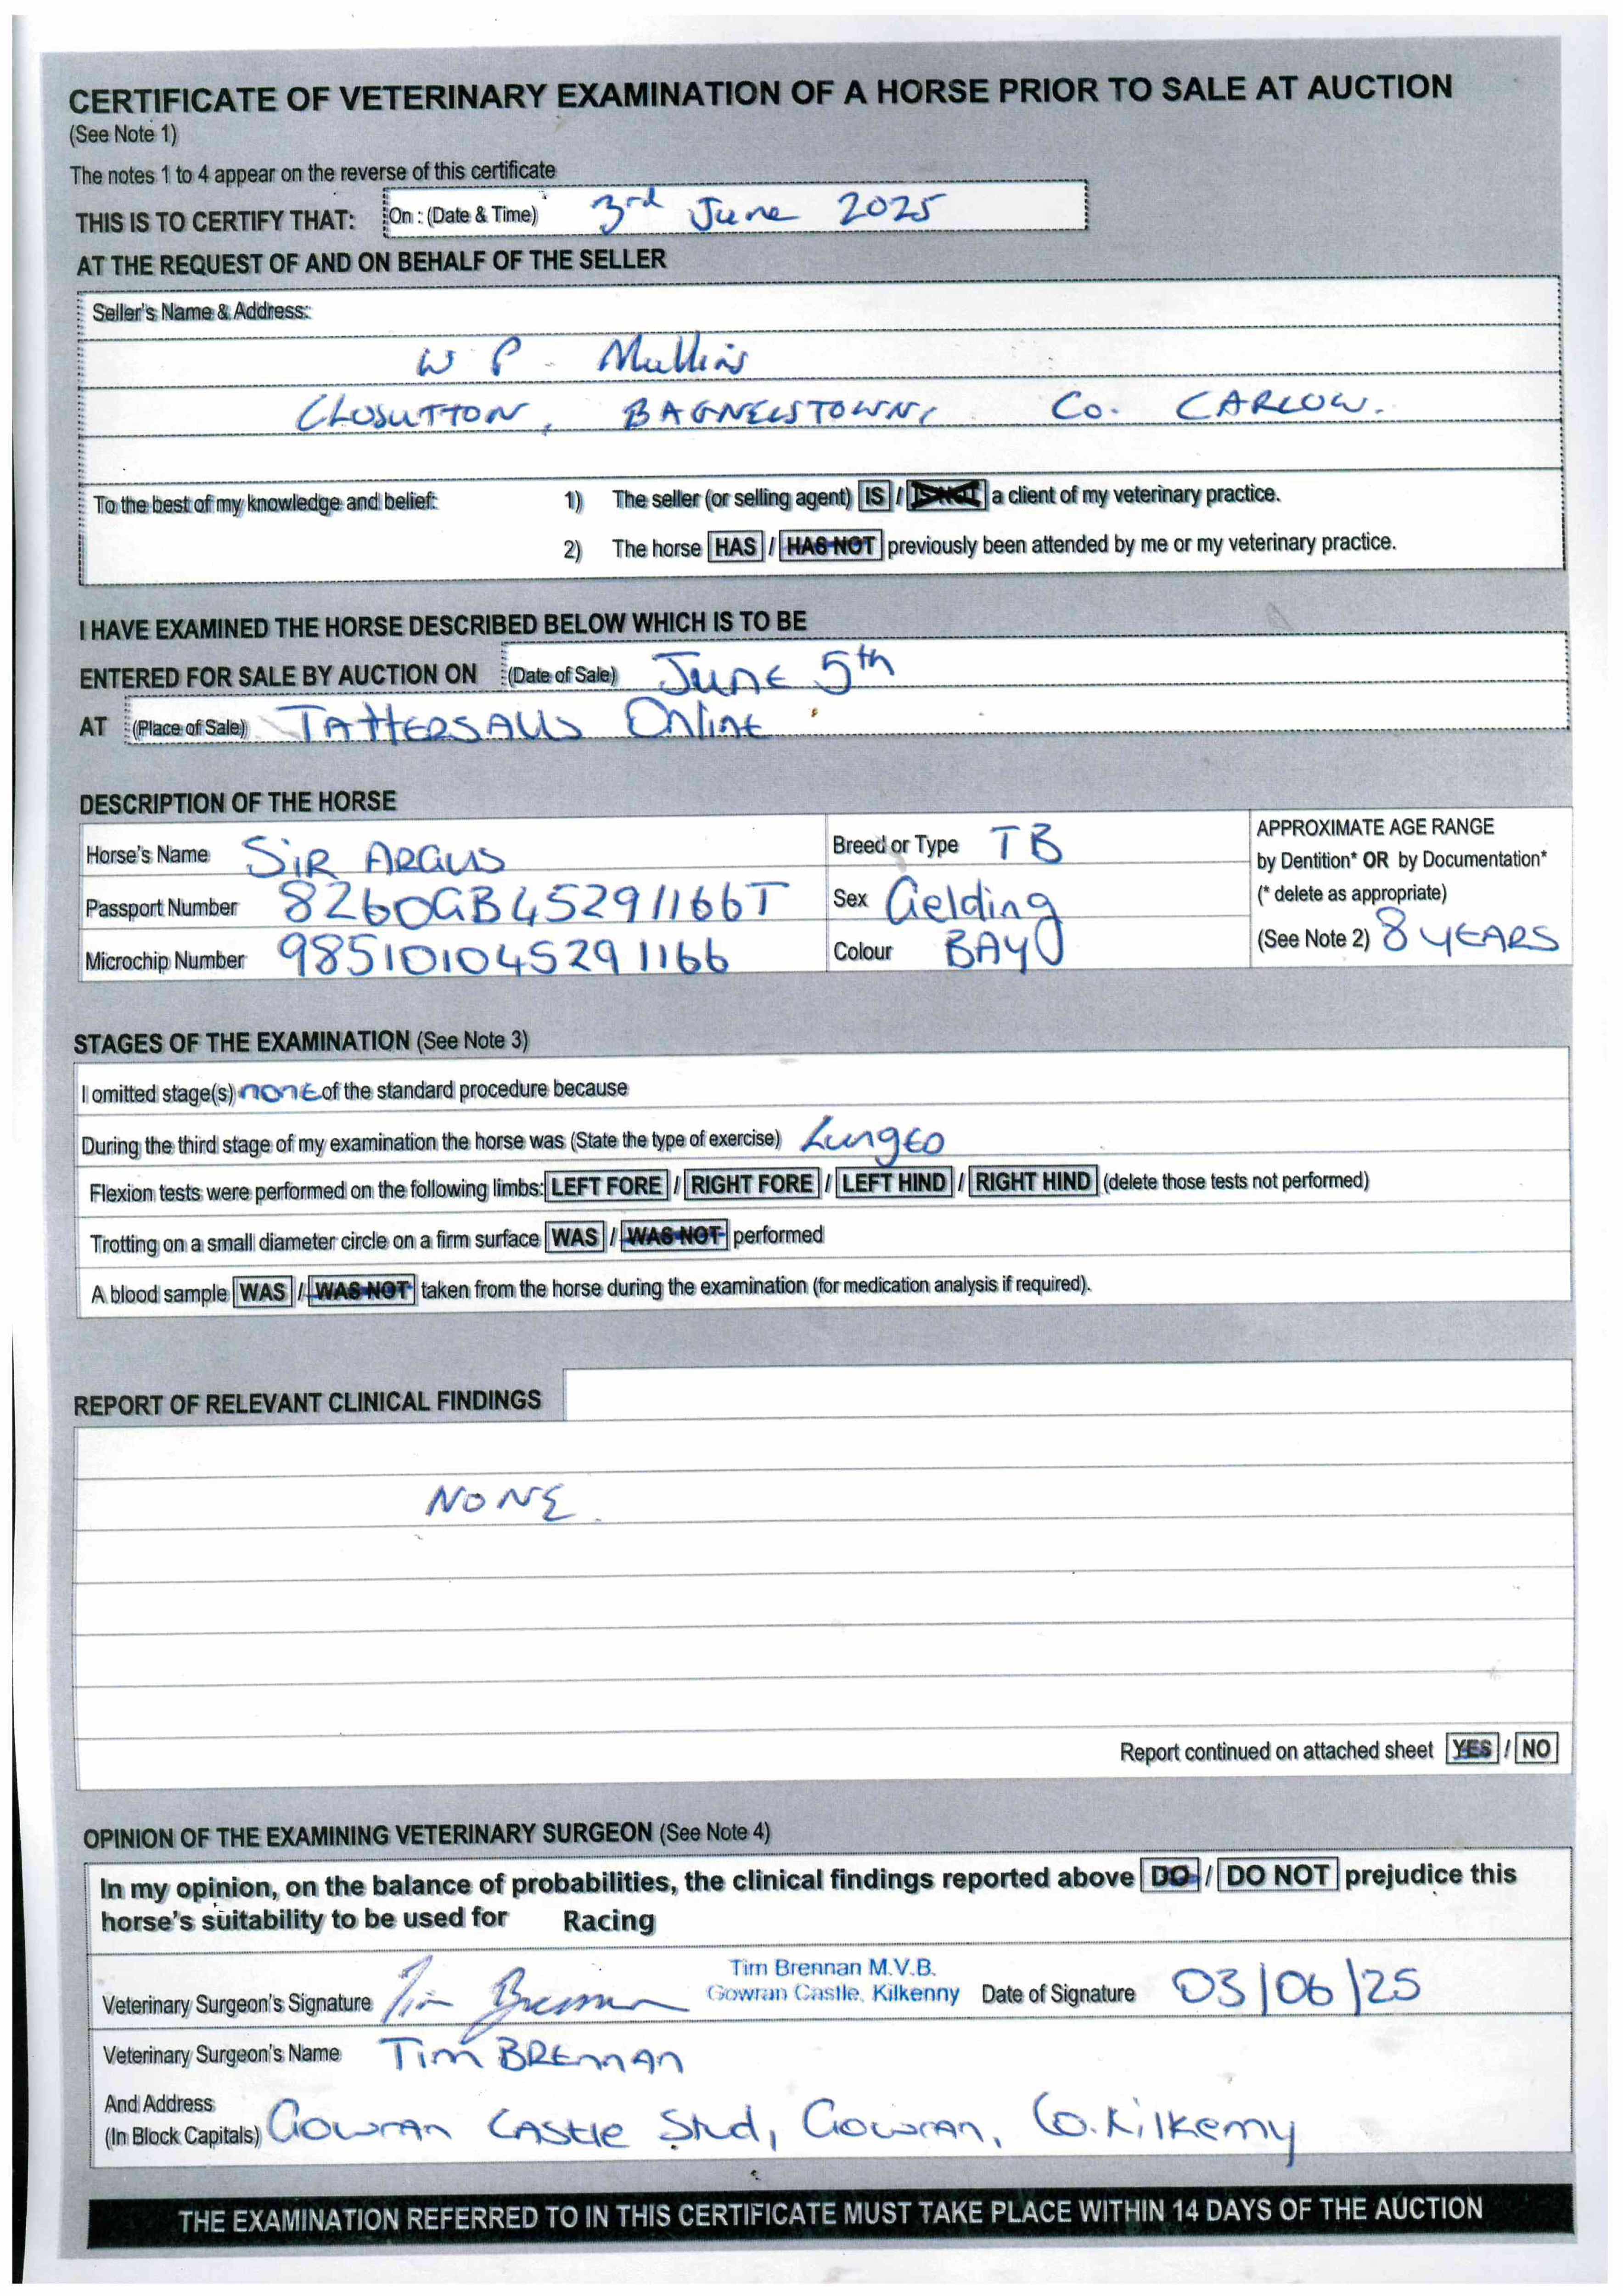 CERTIFICATE OF VETERINARY EXAMINATION OF A HORSE PRIOR TO SALE AT AUCTION
(See Note 1)
The notes 1 to 4 appear on the reverse of this certificate
THIS IS TO CERTIFY THAT: On : (Date & Time) 3rd June 2025
AT THE REQUEST OF AND ON BEHALF OF THE SELLER
Seller's Name & Address:
W P - Mullins
CLOSUTTON, BAGNELSTOWN, Co. CARLOW.
To the best of my knowledge and belief: 1) The seller (or selling agent) IS / IS NOT a client of my veterinary practice.
2) The horse HAS / HAS NOT previously been attended by me or my veterinary practice.
I HAVE EXAMINED THE HORSE DESCRIBED BELOW WHICH IS TO BE
ENTERED FOR SALE BY AUCTION ON (Date of Sale) JUNE 5th
AT (Place of Sale) TATTERSALLS ONLINE
DESCRIPTION OF THE HORSE
Horse's Name SIR ARGUS Breed or Type TB APPROXIMATE AGE RANGE
by Dentition* OR by Documentation*
Passport Number 8260GB45291166T Sex Gelding (* delete as appropriate)
Microchip Number 985101045291166 Colour BAY (See Note 2) 8 YEARS
STAGES OF THE EXAMINATION (See Note 3)
I omitted stage(s) none of the standard procedure because
During the third stage of my examination the horse was (State the type of exercise) Lunged
Flexion tests were performed on the following limbs: LEFT FORE / RIGHT FORE / LEFT HIND / RIGHT HIND (delete those tests not performed)
Trotting on a small diameter circle on a firm surface WAS / WAS NOT performed
A blood sample WAS / WAS NOT taken from the horse during the examination (for medication analysis if required).
REPORT OF RELEVANT CLINICAL FINDINGS
NONE.
Report continued on attached sheet YES / NO
OPINION OF THE EXAMINING VETERINARY SURGEON (See Note 4)
In my opinion, on the balance of probabilities, the clinical findings reported above DO / DO NOT prejudice this
horse's suitability to be used for Racing
Tim Brennan M.V.B.
Veterinary Surgeon's Signature Tim Brennan Gowran Castle, Kilkenny Date of Signature 03/06/25
Veterinary Surgeon's Name Tim BRENNAN
And Address
(In Block Capitals) Gowran CASTLE Stud, Gowran, Co. Kilkenny
THE EXAMINATION REFERRED TO IN THIS CERTIFICATE MUST TAKE PLACE WITHIN 14 DAYS OF THE AUCTION